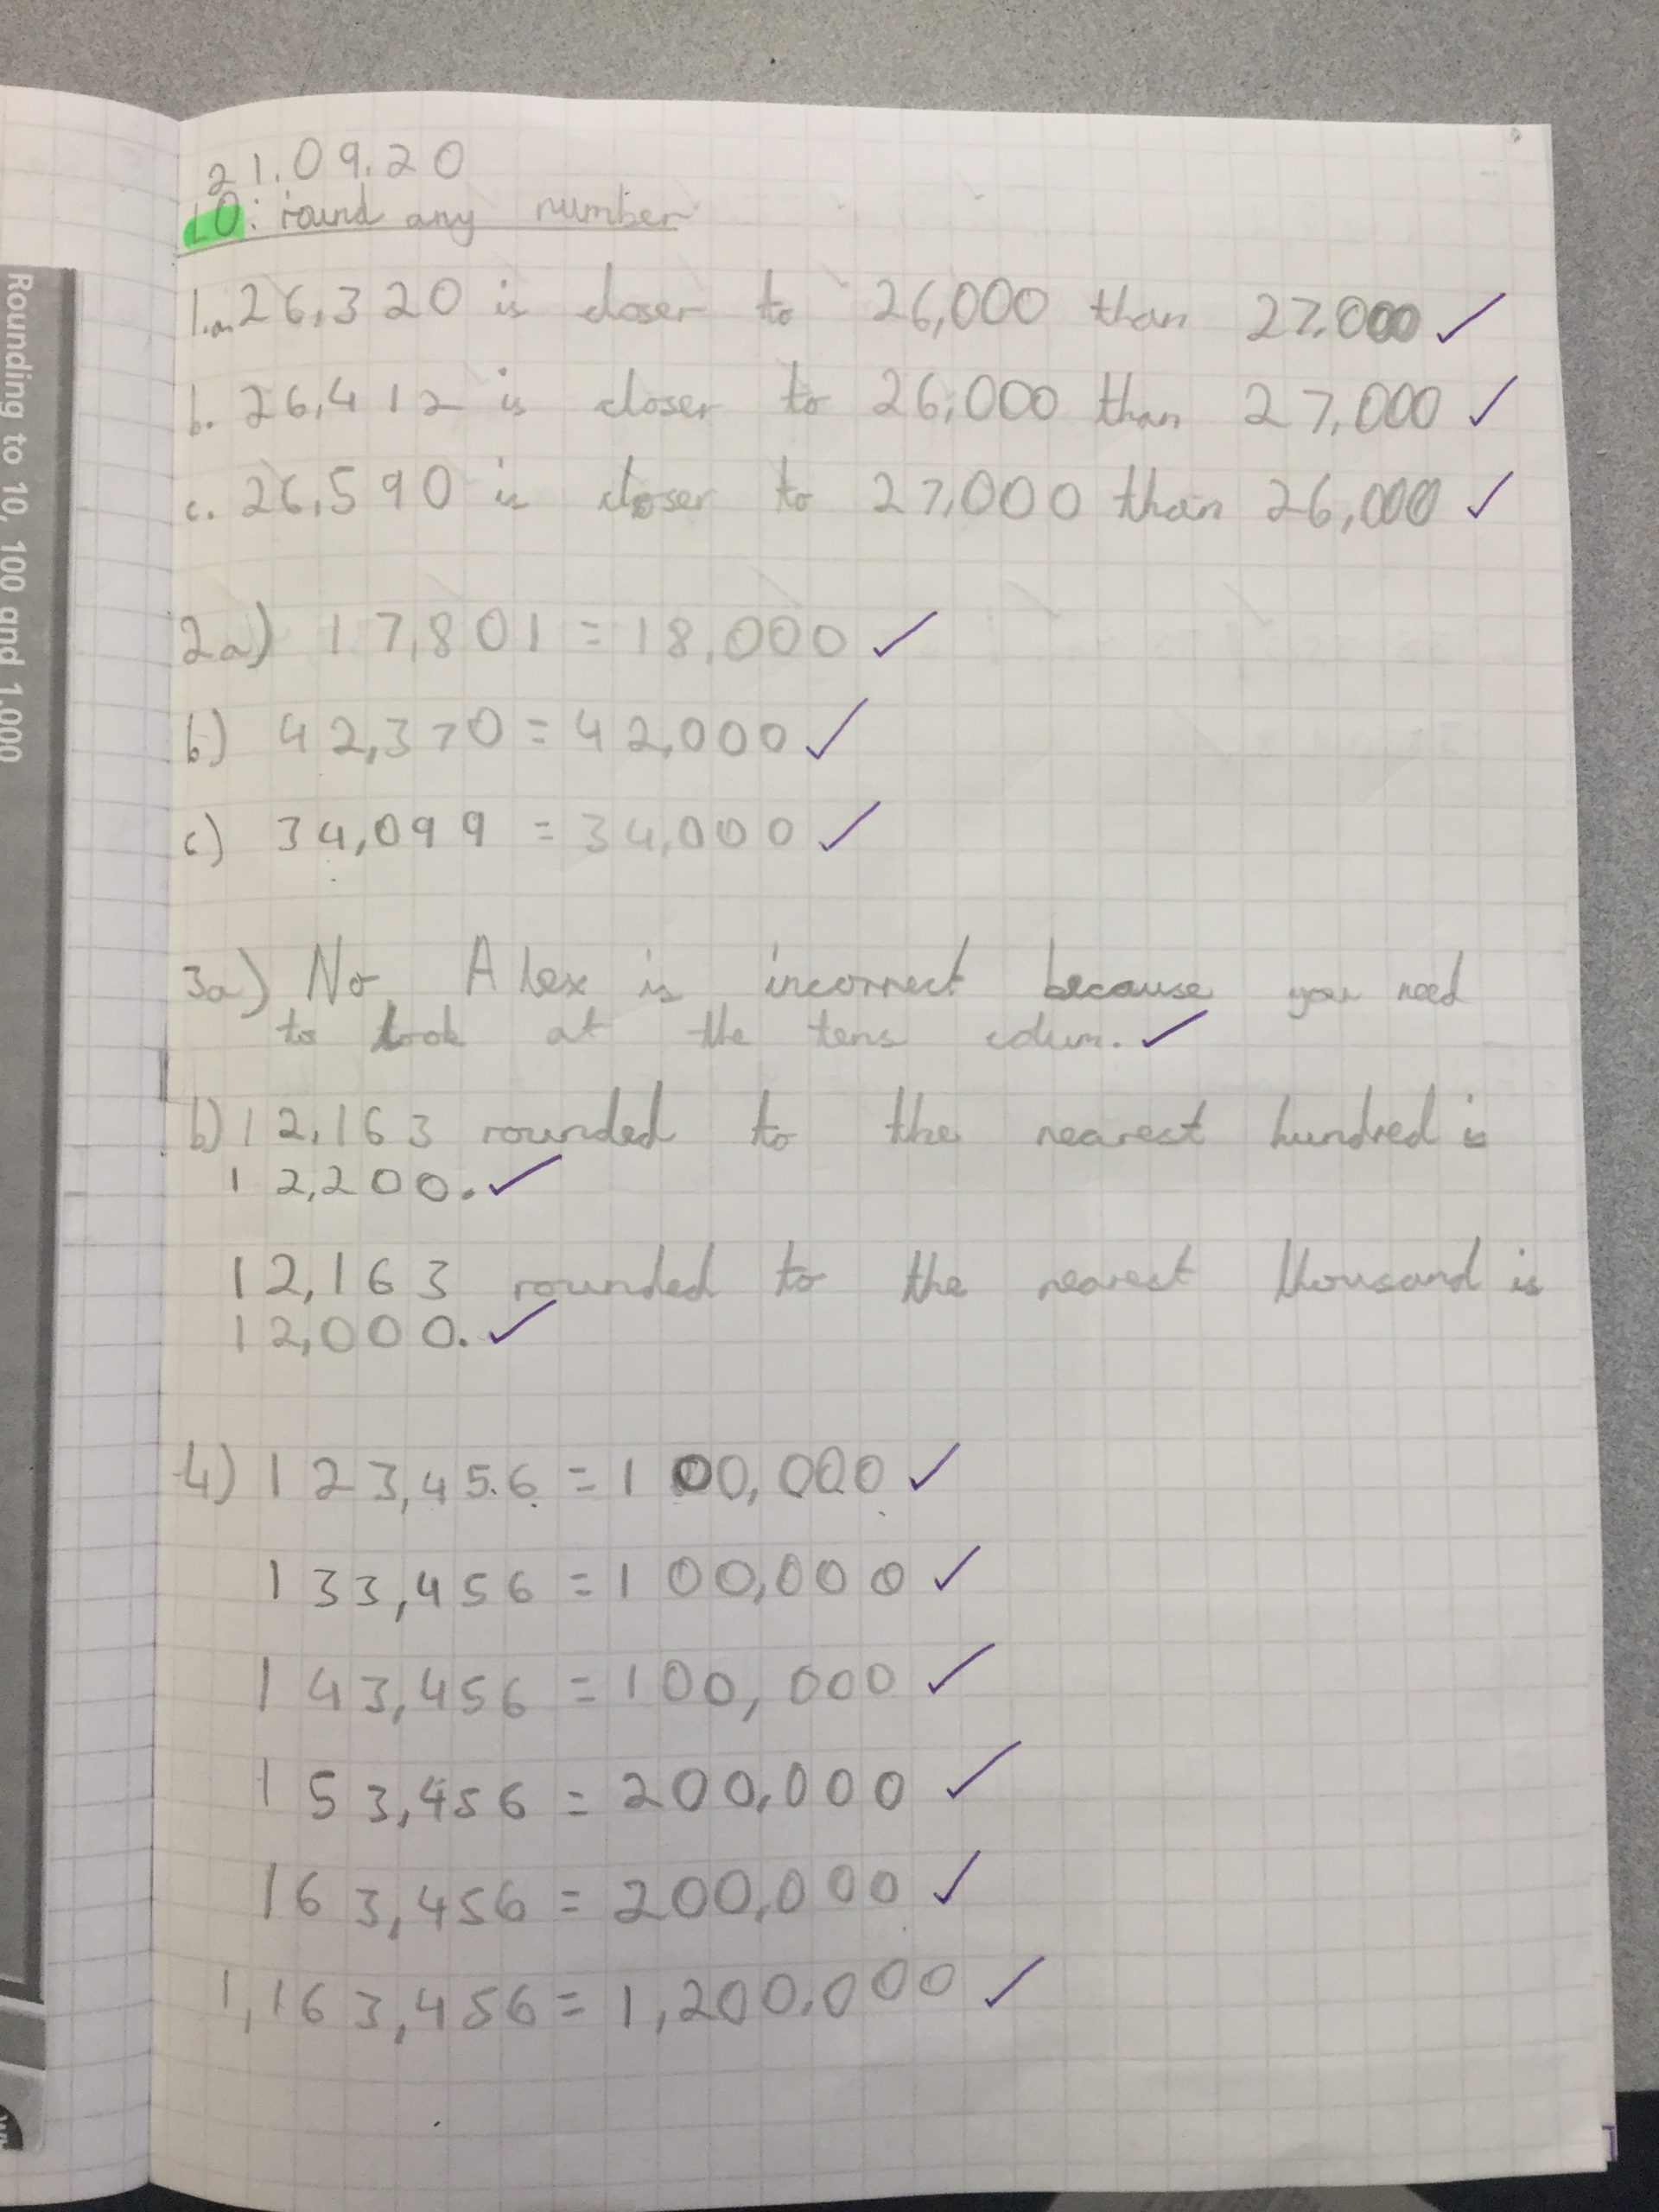 Rounding to 10, 100 and 1,000
21.09.20
LO: round any number
1.a. 26,320 is closer to 26,000 than 27,000 ✓
b. 26,412 is closer to 26,000 than 27,000 ✓
c. 26,590 is closer to 27,000 than 26,000 ✓
2a) 17,801 = 18,000 ✓
b) 42,370 = 42,000 ✓
c) 34,099 = 34,000 ✓
3a) No Alex is incorrect because you need
to look at the tens colum. ✓
b) 12,163 rounded to the nearest hundred is
12,200. ✓
12,163 rounded to the nearest thousand is
12,000. ✓
4) 123,456 = 100,000 ✓
133,456 = 100,000 ✓
143,456 = 100,000 ✓
153,456 = 200,000 ✓
163,456 = 200,000 ✓
1,163,456 = 1,200,000 ✓